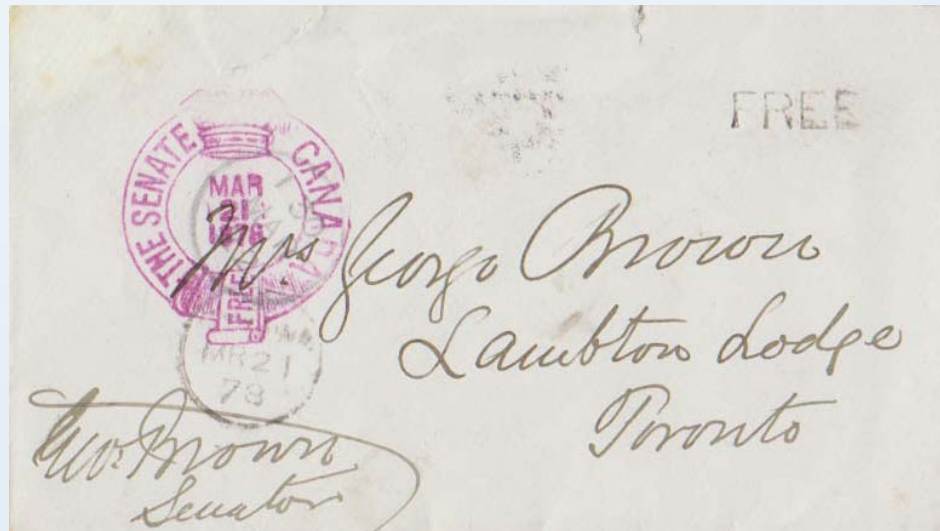 FREE
THE SENATE CANADA
MAR
21
FREE
MR 21
78
Mrs. George Brown
Lambton Lodge
Toronto
Geo. Brown
Senator